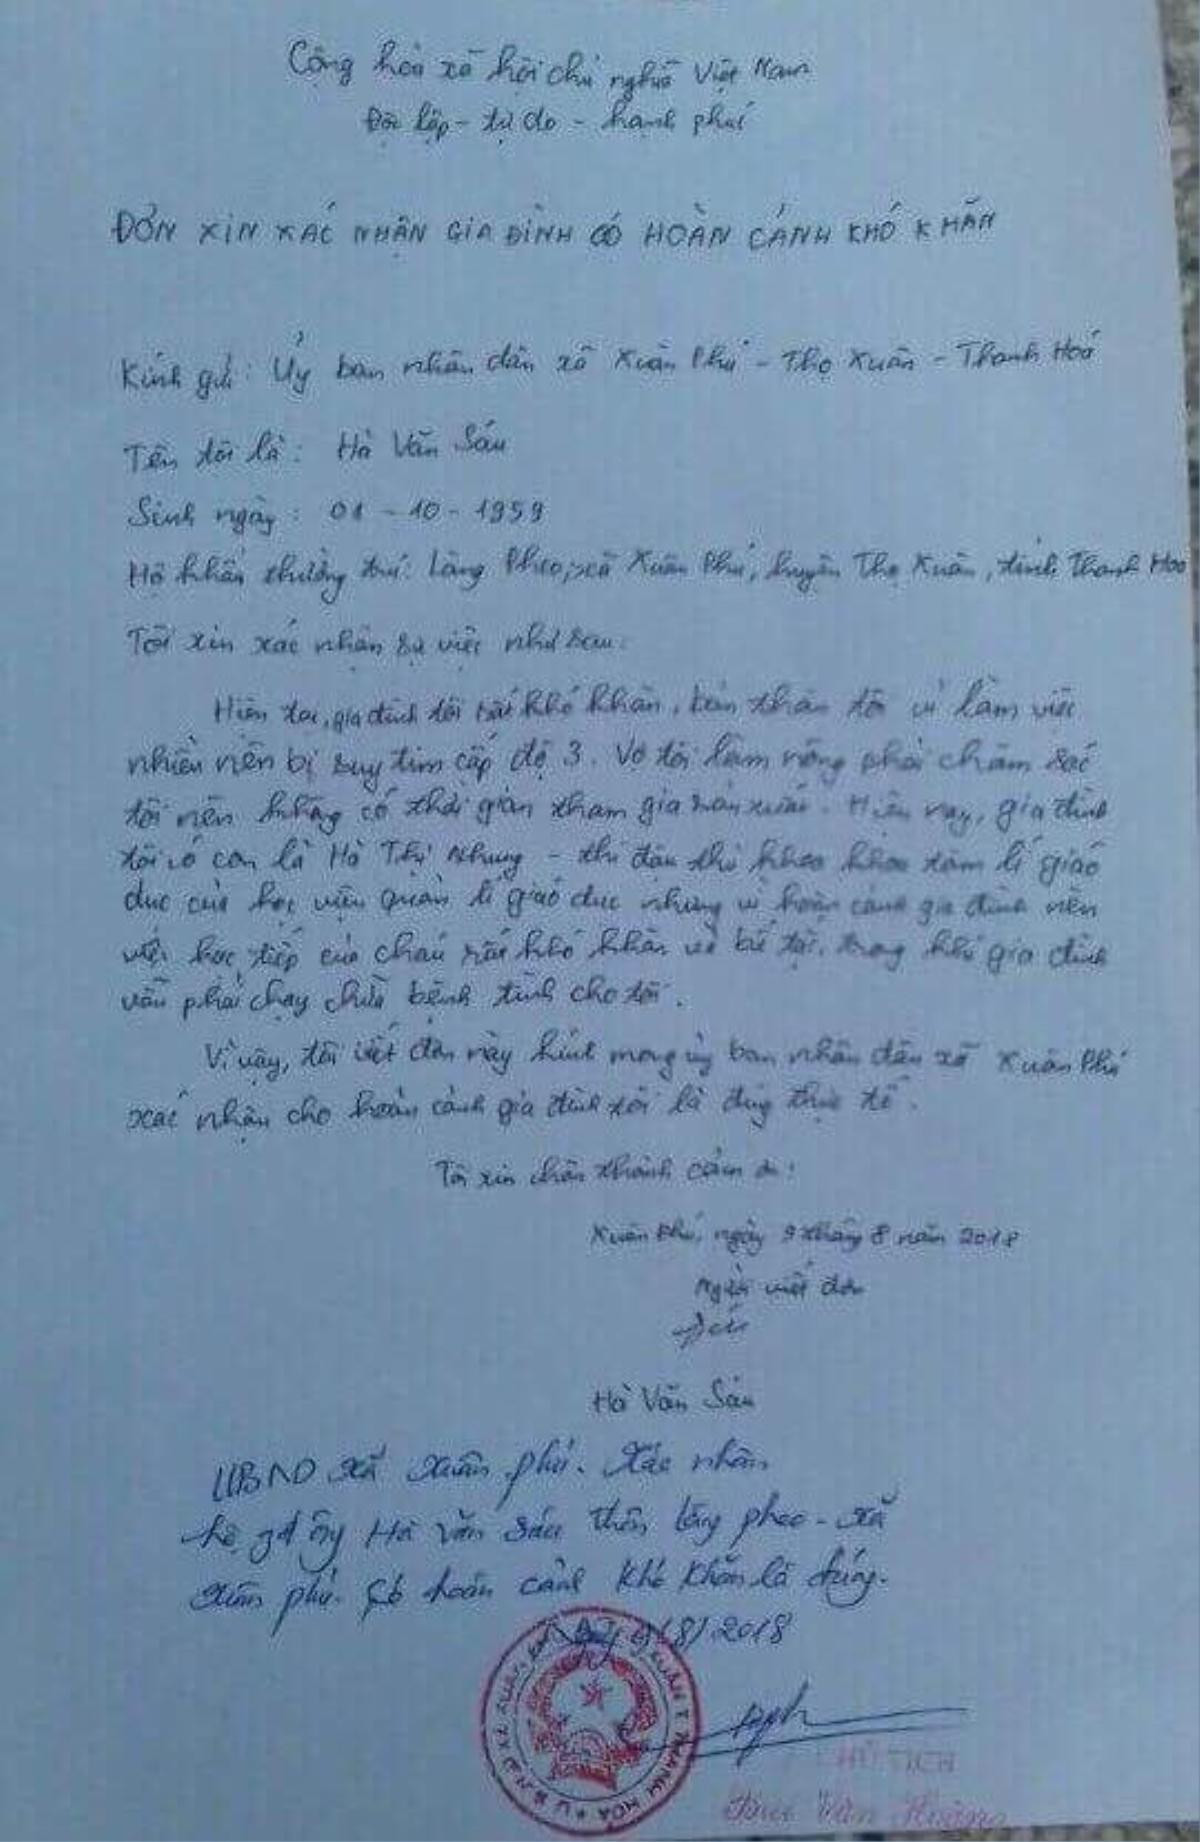 Cộng hòa xã hội chủ nghĩa Việt Nam
Độc lập - tự do - hạnh phúc
ĐƠN XIN XÁC NHẬN GIA ĐÌNH CÓ HOÀN CẢNH KHÓ KHĂN
Kính gửi: Ủy ban nhân dân xã Xuân Phú - Thọ Xuân - Thanh Hoá
Tên tôi là: Hà Văn Sáu
Sinh ngày: 01 - 10 - 1959
Hộ khẩu thường trú: Làng Pheo, xã Xuân Phú, huyện Thọ Xuân, tỉnh Thanh Hoá
Tôi xin xác nhận sự việc như sau:
Hiện tại, gia đình tôi rất khó khăn, bản thân tôi vì làm việc
nhiều nên bị suy tim cấp độ 3. Vợ tôi làm nông phải chăm sóc
tôi nên không có thời gian tham gia sản xuất. Hiện nay, gia đình
tôi có con là Hà Thị Nhung - thi đậu thủ khoa khoa tâm lí giáo
dục của học viện quản lí giáo dục nhưng vì hoàn cảnh gia đình nên
việc học tiếp của cháu rất khó khăn và bế tắc, trong khi gia đình
vẫn phải chạy chữa bệnh tình cho tôi.
Vì vậy, tôi viết đơn này kính mong ủy ban nhân dân xã Xuân Phú
xác nhận cho hoàn cảnh gia đình tôi là đúng thực tế.
Tôi xin chân thành cảm ơn!
Xuân Phú, ngày 9 tháng 8 năm 2018
Người viết đơn
Sáu
Hà Văn Sáu
UBND xã Xuân phú. Xác nhận
hộ gđ ông Hà Văn Sáu thôn làng pheo - xã
Xuân phú. Có hoàn cảnh khó khăn là đúng.
Ngày 9/8/2018
U.B.N.D XÃ XUÂN PHÚ XUÂN T. THANH HÓA
CHỦ TỊCH
Văn Hoàng